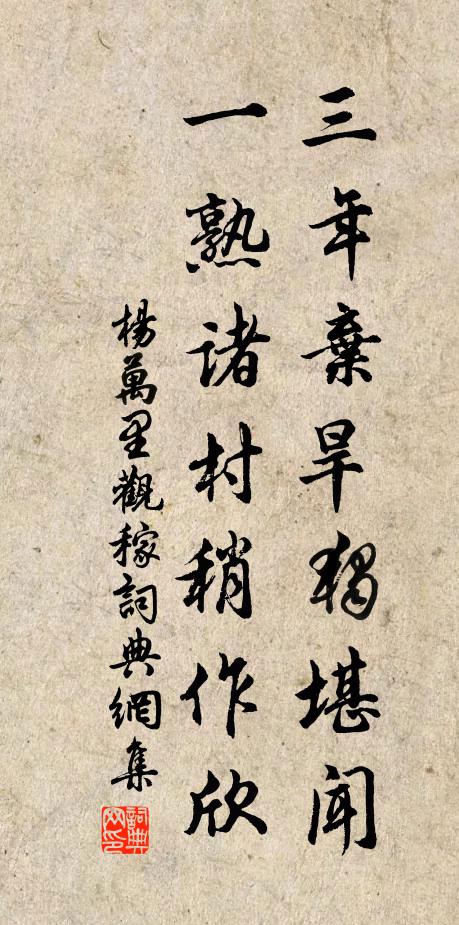 三年棄旱獨堪聞
一熟諸村稍作欣
楊萬里觀稼詞典網集
詞典网印